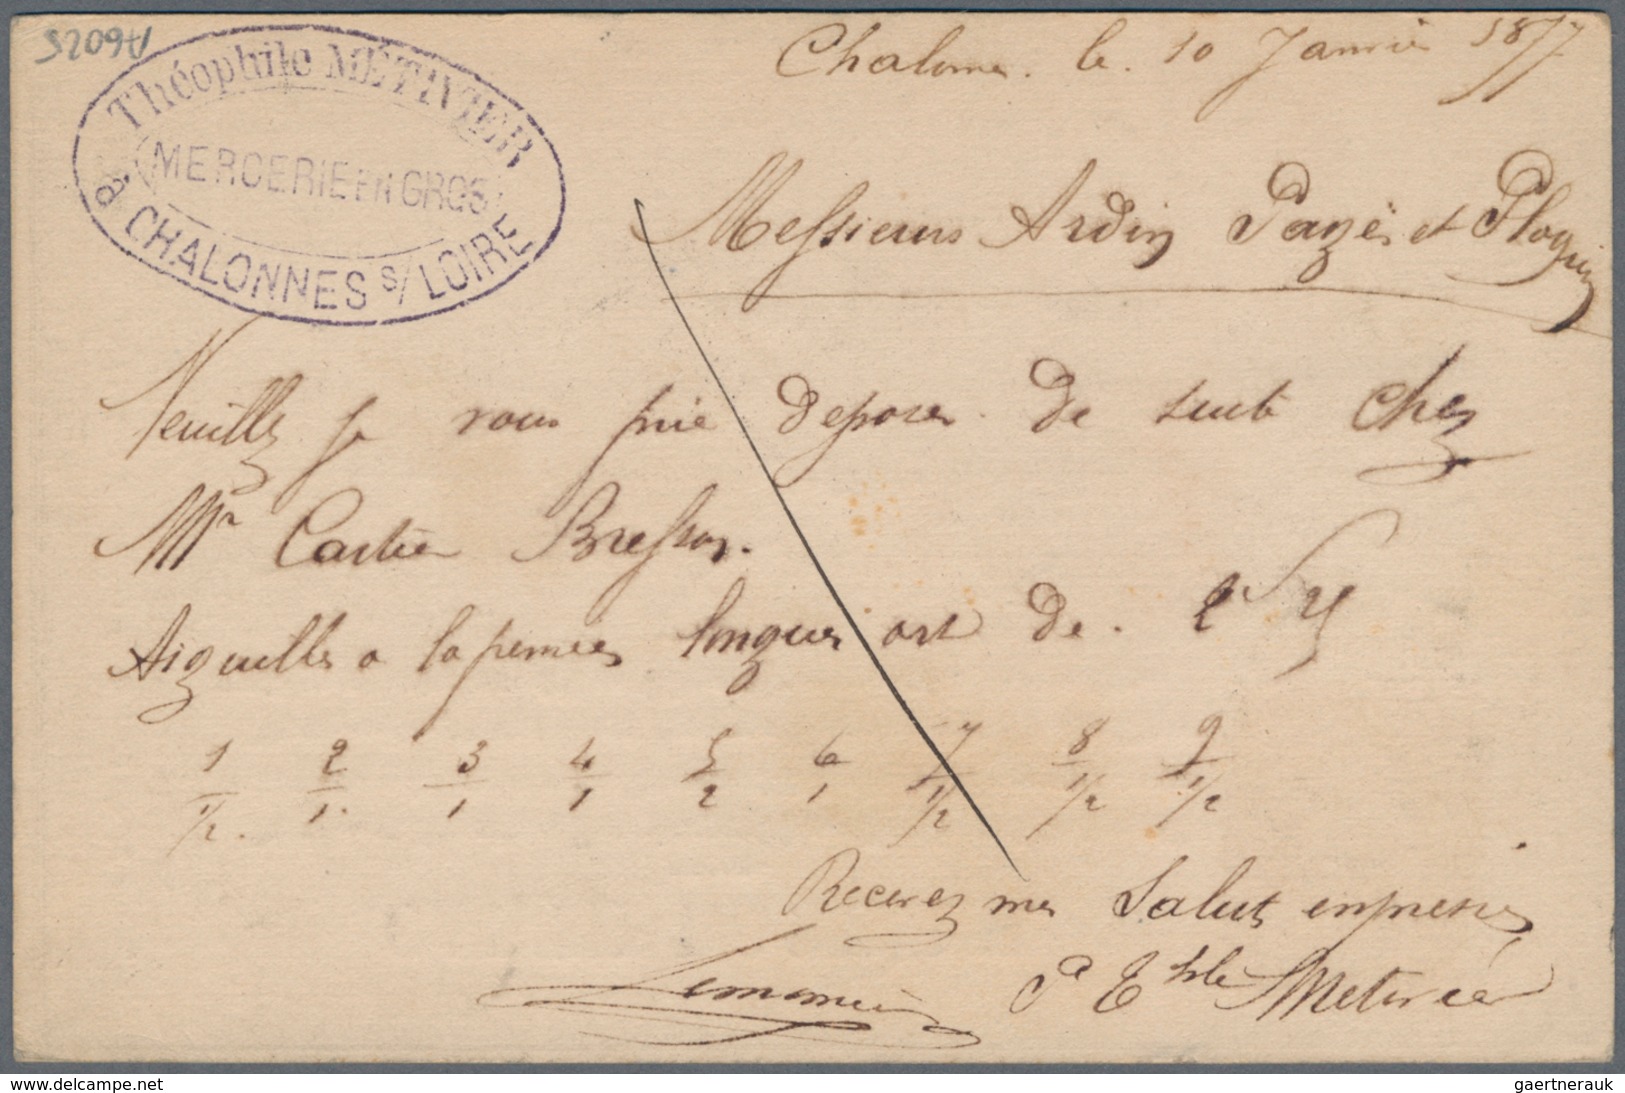 52094
Théophile METIVIER
MERCERIE EN GROS
à CHALONNES S/ LOIRE
Chalonnes. le. 10 Janvier 1877
Messieurs Ardin Pagès et
Veuillez je vous prie deposer. de suite chez
Mr Cartier Bresson.
Aiguilles a la
1 2 3 4 5 6 7 8 9
1/2. 1. 1 1 2 1 1/2 1/2 1/2
Recevez mes Saluts empressés
P Thle Metivier
gaertnerauk
www.delcampe.net